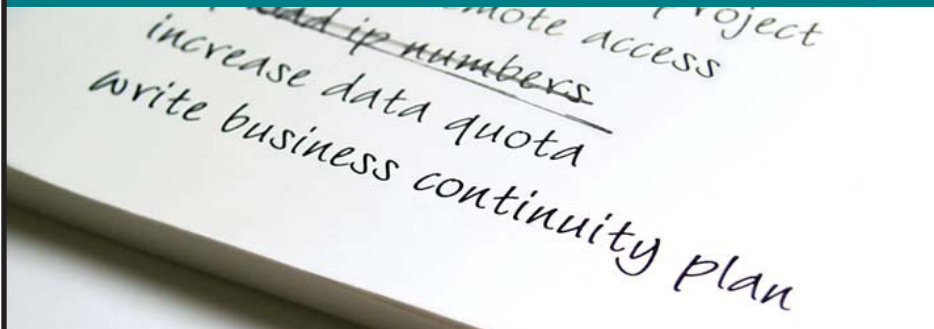 project
remote access
ip numbers
increase data quota
write business continuity plan